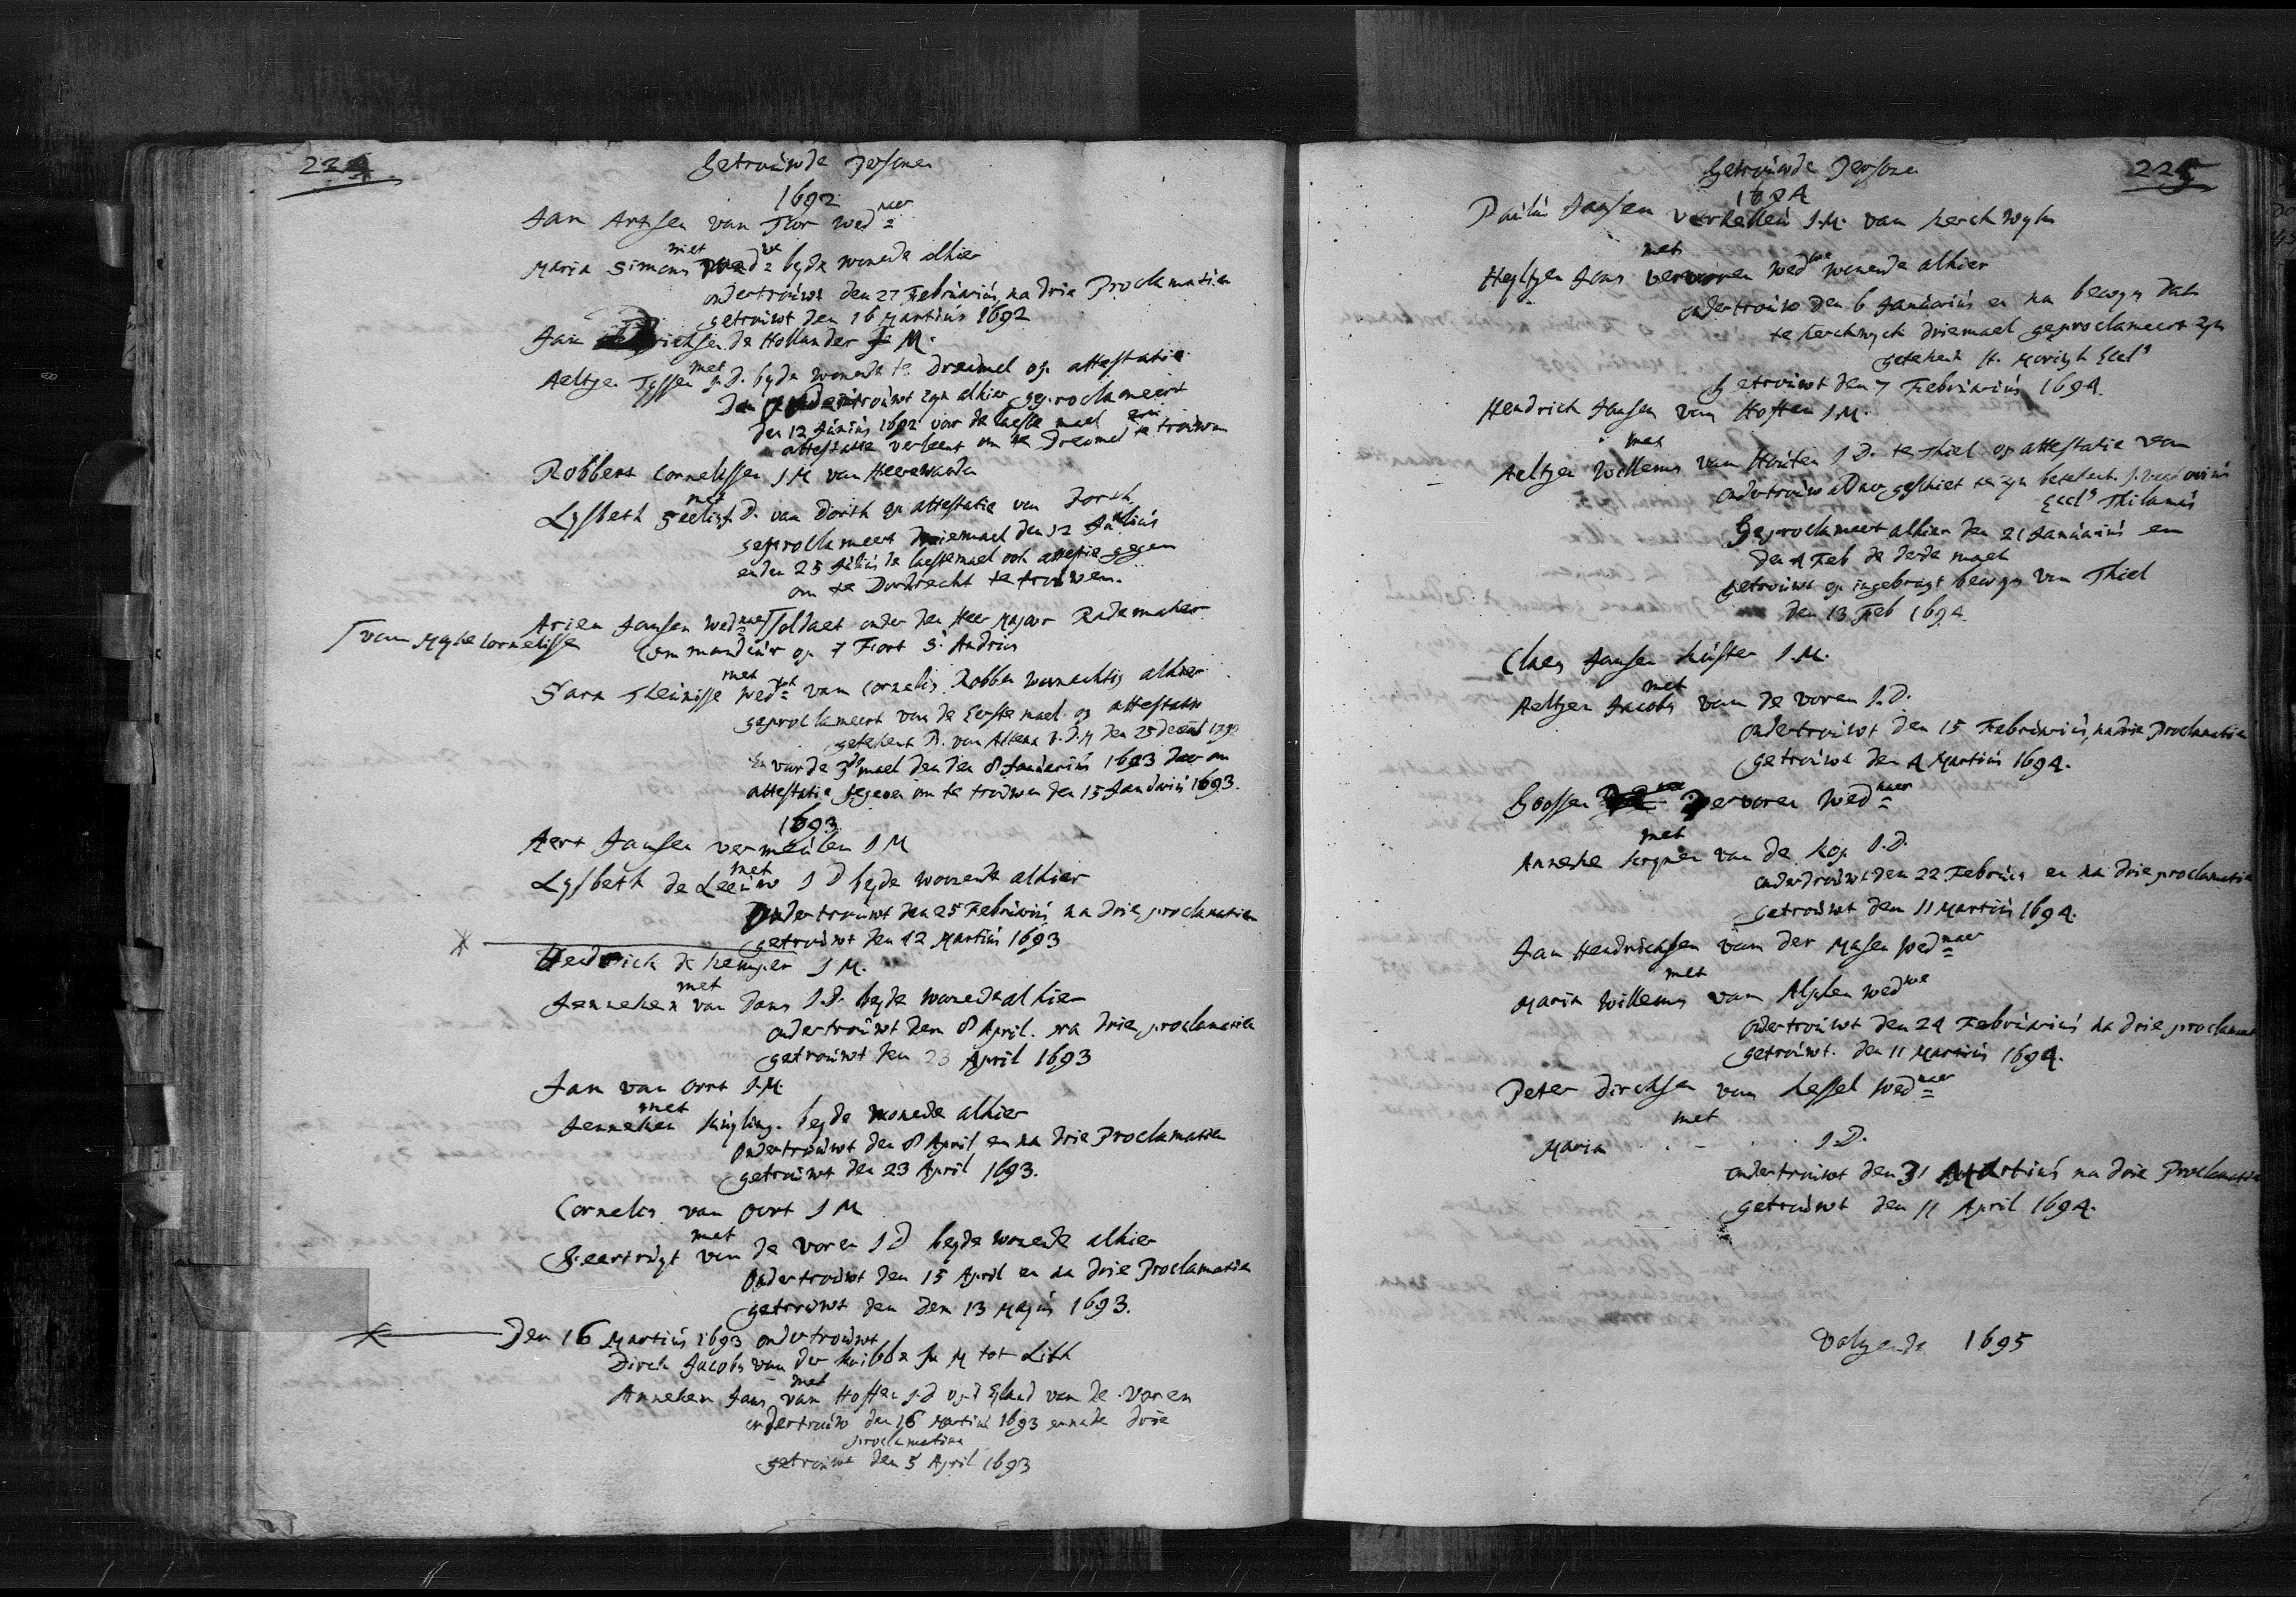 224
Getrouwde Persone
1692
Jan Artsen van Tor wed naer
met
Maria Simons wed we beyde wonende alhier
ondertrouwt den 27 Februarius, na drie Proclamatien
getrouwt den 16 Martius 1692
Jan richsen de Hollander J M.
met
Aeltjen Tyssen J.D. beyde wonende te Dreumel op attestatie
den ondertrouwt zyn alhier geproclameert
den 12 Junius 1692 voor de laeste mael
attestatie verleent om te Dreumel te trouwen
Robbert Cornelissen J M van Heerewarden
met
Lysbeth J.D. van Dorth op attestatie van
geproclameert driemael den 12 Julius
en den 25 Julius de laestemael ook attestie gegeven
om te Dordrecht te trouwen.
Arien Jansen wed naer Soldaet onder den Heer Majoor Rademaker
van Maria Cornelisse
Commandeur op 't Fort S. Andries
met
Sara Theunisse wed we van Cornelis Robben woenachtig alhier
geproclameert van de Eerste mael op attestatie
getekent B. van Altena V.D.M den 25 decemb
En voor de 3de mael den den 8 Januarius 1693 daer om
attestatie gegeven om te trouwen den 15 Januarius 1693.
1693
Aert Jansen Vermeulen J M
met
Lysbeth de Leeuw J D beyde wonende alhier
Ondertrouwt den 25 Februarius na drie proclamatien
getrouwt den 12 Martius 1693
Hendrick de Kemper J M.
met
Jenneken van Dans J.D. beyde wonende alhier
ondertrouwt den 8 April. na drie proclamatien
getrouwt den 23 April 1693
Jan van Oort J.M.
met
Jenneken Kingling. beyde wonende alhier
Ondertrouwt den 8 April en na drie Proclamatien
getrouwt den 23 April 1693.
Cornelis van Oort J M
met
Geertruyt van de Voren J D beyde wonende alhier
Ondertrouwt den 15 April en na drie Proclamatien
getrouwt den den 13 Majus 1693.
Den 16 Martius 1693 ondertrouwt
Dirck Jacobs van der Knibbe J M tot Lith
met
Anneken Jans van Hoften J.D op 't Eland van de Voren
ondertrouw den 16 Martius 1693 en na de drie
proclamatien
getrouwt den 5 April 1693
225
Getrouwde Persone
1694
Paulus Jansen Verhellen J.M. van Kerckwyk
met
Heyltjen Jans Vervoren wed we wonende alhier
ondertrouw den 6 Januarius en na bewys dat
te Kerckwyck driemael geproclameert zyn
getekent H. Eccl.
Getrouwt den 7 Februarius 1694.
Hendrick Jansen van Hoften J.M.
met
Aeltjen Willems van Houten J.D. te Thiel op attestatie van
ondertrouw aldaer geschiet te zyn
Eccl. Thilanus
Geproclameert alhier den 21 Januarius en
den 4 Feb de derde mael
getrouwt op ingebragt bewys van Thiel
den 13 Feb 1694.
Claes Jansen Kuster J.M.
met
Aeltjen Jacobs van de Voren J.D.
ondertrouwt den 15 Februarius, na drie Proclamatien
getrouwt den 4 Martius 1694.
Goossen Vervoren wed naer
met
Anneke van de Kop J.D.
ondertrouwt den 22 Februarius en na drie proclamatien
getrouwt den 11 Martius 1694.
Jan Hendricksen van der Masen wed naer
met
Maria Willems van Alphen wed we
ondertrouwt den 24 Februarius na drie proclamat
getrouwt. den 11 Martius 1694.
Peter Dircksen van Hessel wed naer
met
Maria . - . J.D.
ondertrouwt den 31 Martius na drie Proclamatie
getrouwt den 11 April 1694.
Volgende 1695